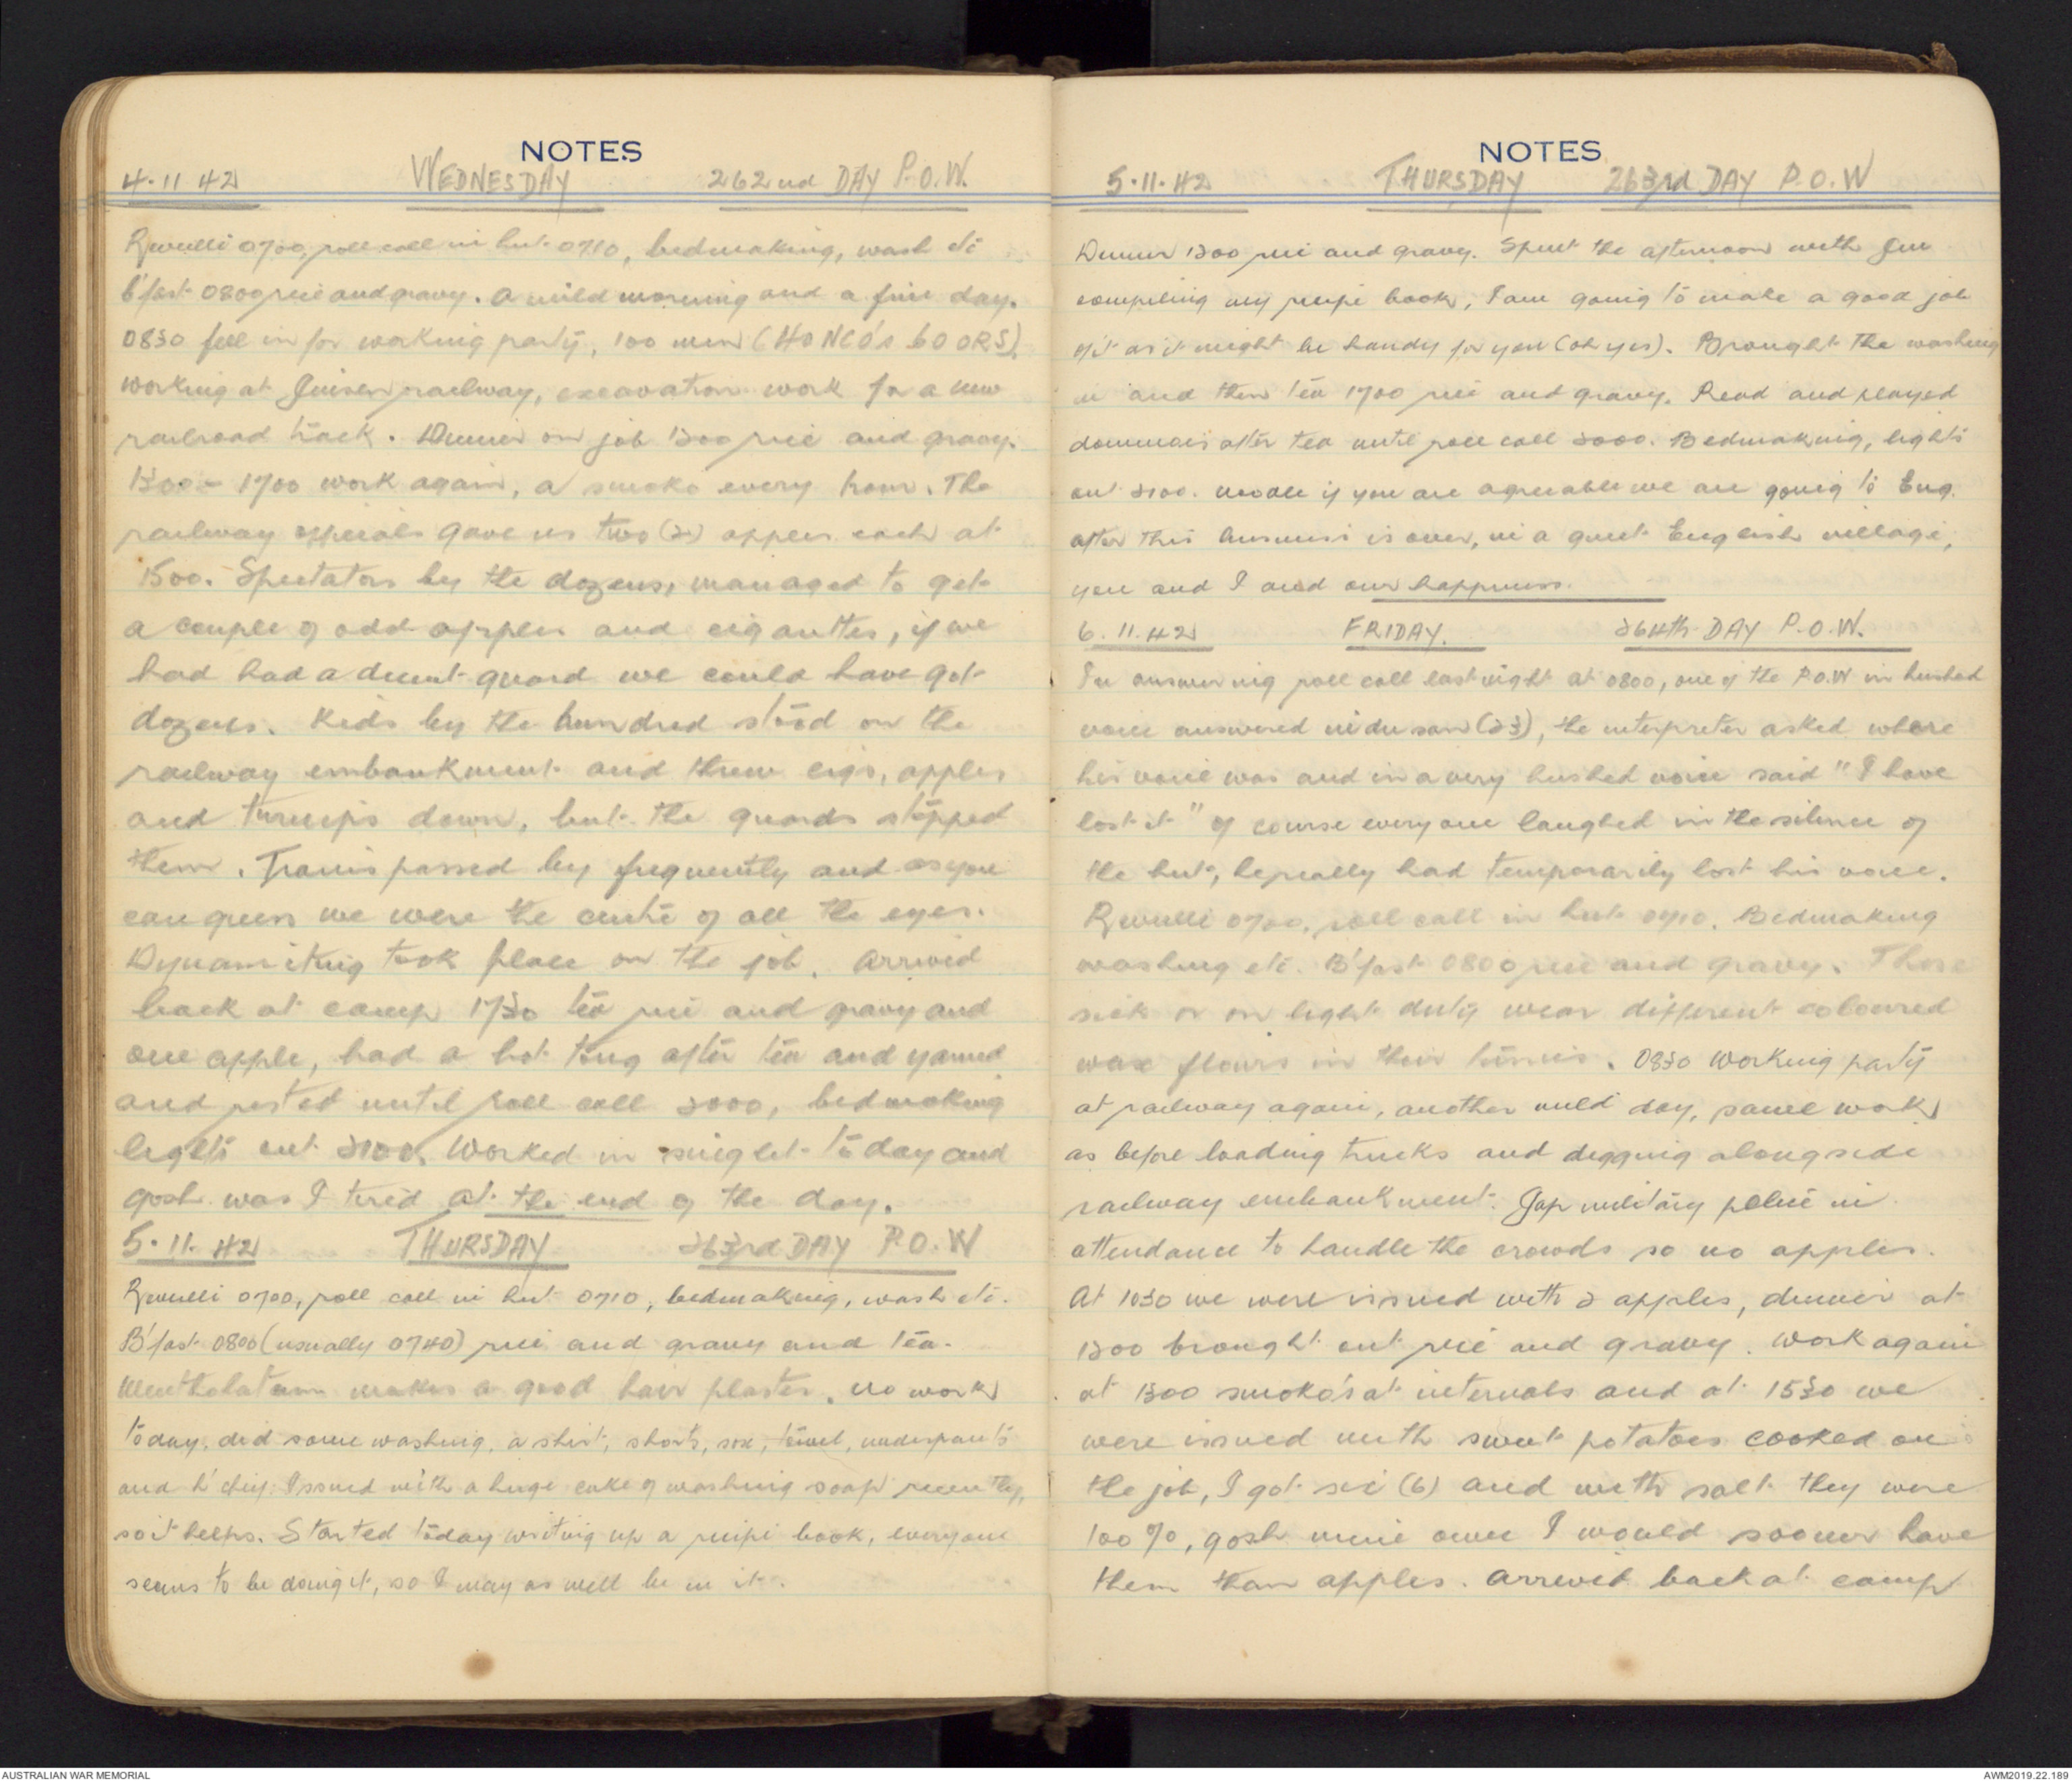 NOTES
4.11.42 WEDNESDAY 262nd DAY P.O.W.
Reveille 0700, roll call in hut 0710, bedmaking, wash etc
b'fast 0800 rice and gravy. A mild morning and a fine day.
0830 fell in for working party, 100 men (40 NCO's 60 ORS)
working at railway, excavation work for a new
railroad track. Dinner on job 1200 rice and gravy.
1300 - 1700 work again, a smoko every hour. The
railway officials gave us two (2) apples each at
1500. Spectators by the dozens, managed to get
a couple of odd apples and cigarettes, if we
had had a decent guard we could have got
dozens. Kids by the hundred stood on the
railway embankment and threw cigs, apples
and turnips down, but the guards stopped
them. Trains passed by frequently and as you
can guess we were the centre of all the eyes.
Dynamiting took place on the job. Arrived
back at camp 1730 tea rice and gravy and
one apple, had a hot tong after tea and yarned
and rested until roll call 2000, bedmaking
lights out 2100. Worked in singlet today and
gosh was I tired at the end of the day.
5.11.42 THURSDAY 263rd DAY P.O.W
Reveille 0700, roll call in hut 0710, bedmaking, wash etc.
B'fast 0800 (usually 0740) rice and gravy and tea.
Mentholatum makes a good hair plaster. No work
today, did some washing, a shirt, shorts, sox, towel, underpants
and h'chief. Issued with a huge cake of washing soap recently,
so it helps. Started today writing up a recipe book, everyone
seems to be doing it, so I may as well be in it.
NOTES
5.11.42 THURSDAY 263rd DAY P.O.W
Dinner 1200 rice and gravy. Spent the afternoon with Jim
compiling my recipe book, I am going to make a good job
of it as it might be handy for you (oh yes). Brought the washing
in and then tea 1700 rice and gravy. Read and played
dominoes after tea until roll call 2000. Bedmaking, lights
out 2100. if you are agreeable we are going to Eng.
after this business is over, in a quiet English village,
you and I and our happiness.
6.11.42 FRIDAY. 264th DAY P.O.W.
In answering roll call last night at 0800, one of the P.O.W in hushed
voice answered nidusan (23), the interpreter asked where
his voice was and in a very hushed voice said "I have
lost it" of course everyone laughed in the silence of
the hut, he really had temporarily lost his voice.
Reveille 0700, roll call in hut 0710. Bedmaking
washing etc. B'fast 0800 rice and gravy. Those
sick or on light duty wear different coloured
wax flours in their tunics. 0830 working party
at railway again, another mild day, same work
as before loading trucks and digging alongside
railway embankment. Jap military police in
attendance to handle the crowds so no apples.
At 1030 we were issued with 2 apples, dinner at
1200 brought out rice and gravy. Work again
at 1300 smoko's at intervals and at 1530 we
were issued with sweet potatoes cooked on
the job, I got six (6) and with salt they were
100%, gosh mine own I would sooner have
them than apples. Arrived back at camp
AUSTRALIAN WAR MEMORIAL
AWM2019.22.189